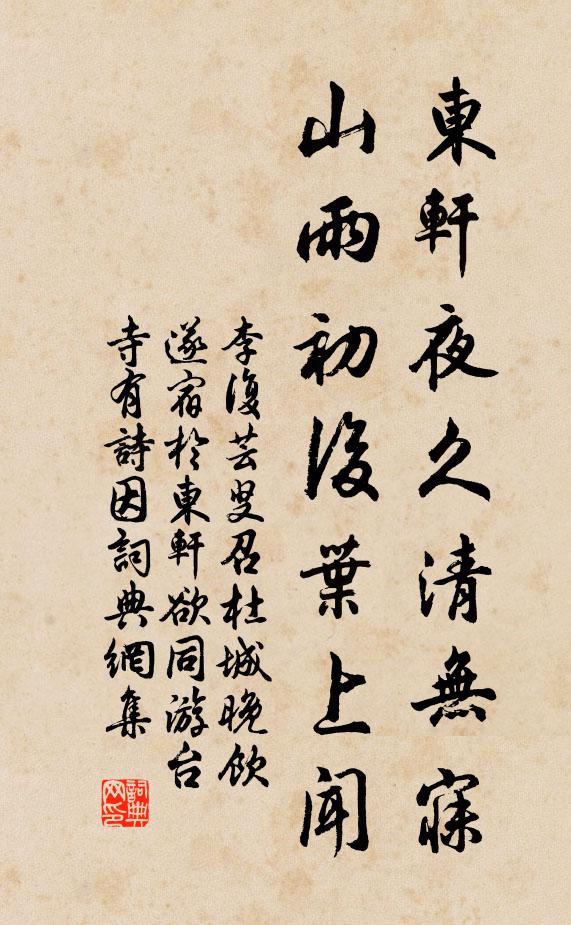 東軒夜久清無寐
山雨初後葉上聞
李復芸叟召杜城晚飲
遂宿於東軒欲同游台
寺有詩因詞典網集
詞典网印